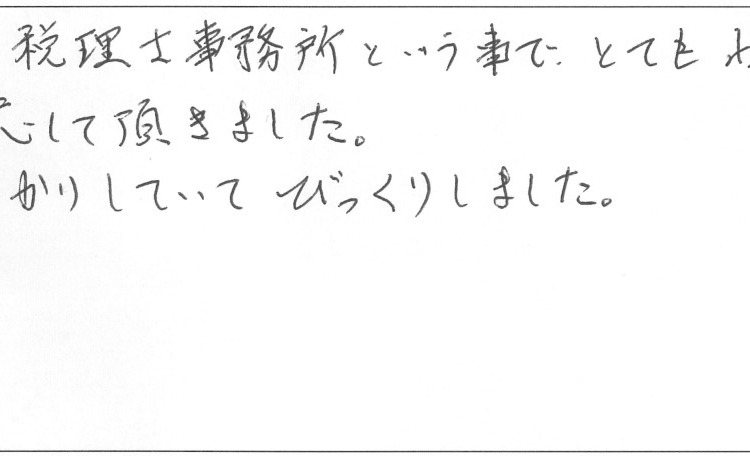 税理士事務所という事で とても
応して頂きました。
かりしていて びっくりしました。